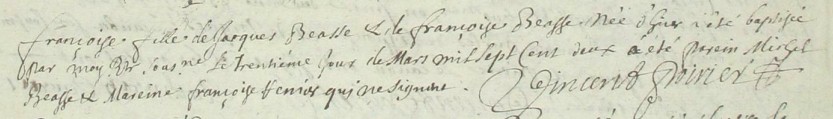 françoise fille de Jacques Beasse & de françoise Beasse Née d'hier a été baptisée
par moy Vr Sous.né Le trentieme Jour de Mars mil Sept Cent deux a été parein Michel
Beasse & Mareine françoise qui ne Signent. Vincent Poirier